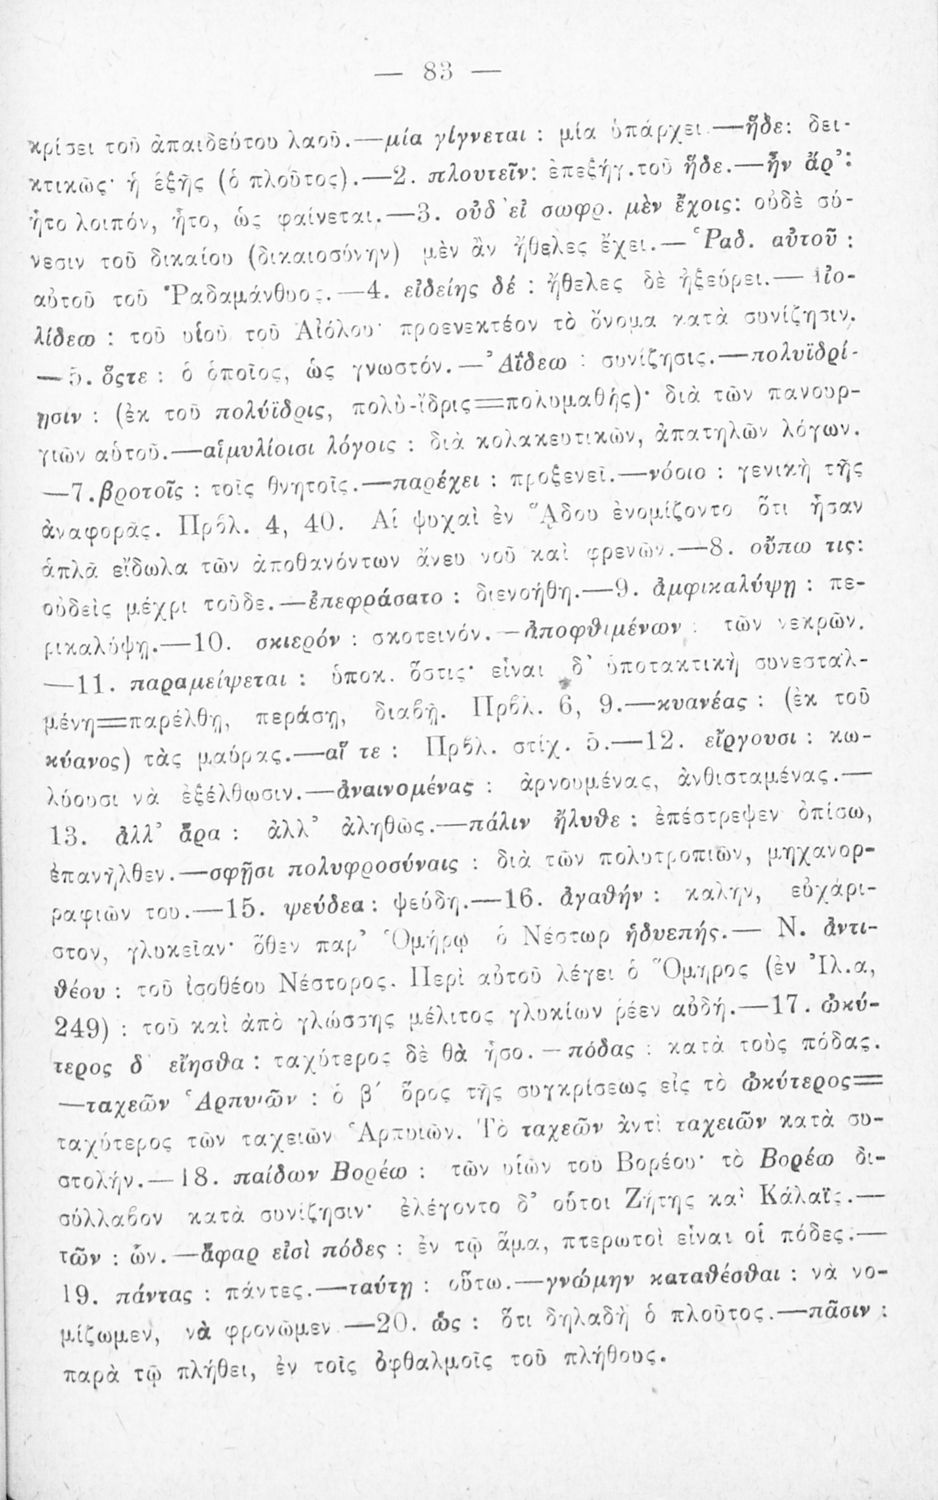 — 83 —
κρίσει τοῦ ἀπαιδεύτου λαοῦ.—μία γίγνεται : μία ὑπάρχει.—ἥδε: δει-
κτικῶς· ἡ ἑξῆς (ὁ πλοῦτος).—2. πλουτεῖν: ἐπεξήγ.τοῦ ἥδε.—ἦν ἄρ':
ἦτο λοιπόν, ἦτο, ὡς φαίνεται.—3. οὐδ' εἰ σωφρ. μὲν ἔχοις: οὐδὲ σύ-
νεσιν τοῦ δικαίου (δικαιοσύνην) μὲν ἂν ἤθελες ἔχει.—Ῥαδ. αὐτοῦ :
αὐτοῦ τοῦ Ῥαδαμάνθυος.—4. εἰδείης δέ : ἤθελες δὲ ἠξεύρει.—Αἰο-
λίδεω : τοῦ υἱοῦ τοῦ Αἰόλου· προενεκτέον τὸ ὄνομα κατὰ συνίζησιν.
—5. ὅςτε : ὁ ὁποῖος, ὡς γνωστόν.—Ἀΐδεω : συνίζησις.—πολυϊδρί-
ῃσιν : (ἐκ τοῦ πολύϊδρις, πολὺ-ἴδρις=πολυμαθής)· διὰ τῶν πανουρ-
γιῶν αὑτοῦ.—αἱμυλίοισι λόγοις : διὰ κολακευτικῶν, ἀπατηλῶν λόγων.
—7.βροτοῖς : τοῖς θνητοῖς.—παρέχει : προξενεῖ.—νόοιο : γενικὴ τῆς
ἀναφορᾶς. Πρβλ. 4, 40. Αἱ ψυχαὶ ἐν Ἅδου ἐνομίζοντο ὅτι ἦσαν
ἁπλᾶ εἴδωλα τῶν ἀποθανόντων ἄνευ νοῦ καὶ φρενῶν.—8. οὔπω τις:
οὐδεὶς μέχρι τοῦδε.—ἐπεφράσατο : διενοήθη.—9. ἀμφικαλύψῃ : πε-
ρικαλύψῃ.—10. σκιερόν : σκοτεινόν.—ἀποφθιμένων : τῶν νεκρῶν.
—11. παραμείψεται : ὑποκ. ὅστις· εἶναι δ' ὑποτακτικὴ συνεσταλ-
μένη=παρέλθῃ, περάσῃ, διαβῇ. Πρβλ. 6, 9.—κυανέας : (ἐκ τοῦ
κύανος) τὰς μαύρας.—αἵ τε : Πρβλ. στίχ. 5.—12. εἴργουσι : κω-
λύουσι νὰ ἐξέλθωσιν.—ἀναινομένας : ἀρνουμένας, ἀνθισταμένας.—
13. ἀλλ' ἄρα : ἀλλ' ἀληθῶς.—πάλιν ἤλυθε : ἐπέστρεψεν ὀπίσω,
ἐπανῆλθεν.—σφῇσι πολυφροσύναις : διὰ τῶν πολυτροπιῶν, μηχανορ-
ραφιῶν του.—15. ψεύδεα : ψεύδη.—16. ἀγαθήν : καλήν, εὐχάρι-
στον, γλυκεῖαν· ὅθεν παρ' Ὁμήρῳ ὁ Νέστωρ ἡδυεπής.— Ν. ἀντι-
θέου : τοῦ ἰσοθέου Νέστορος. Περὶ αὐτοῦ λέγει ὁ Ὅμηρος (ἐν Ἰλ.α,
249) : τοῦ καὶ ἀπὸ γλώσσης μέλιτος γλυκίων ῥέεν αὐδή.—17. ὠκύ-
τερος δ εἴησθα : ταχύτερος δὲ θὰ ἦσο.—πόδας : κατὰ τοὺς πόδας.
—ταχεῶν Ἁρπυιῶν : ὁ β΄ ὅρος τῆς συγκρίσεως εἰς τὸ ὠκύτερος=
ταχύτερος τῶν ταχειῶν Ἁρπυιῶν. Τὸ ταχεῶν ἀντὶ ταχειῶν κατὰ συ-
στολήν.—18. παίδων Βορέω : τῶν υἱῶν του Βορέου· τὸ Βορέω δι-
σύλλαβον κατὰ συνίζησιν· ἐλέγοντο δ' οὗτοι Ζήτης καὶ Κάλαϊς.—
τῶν : ὧν.—ἄφαρ εἰσὶ πόδες : ἐν τῷ ἅμα, πτερωτοὶ εἶναι οἱ πόδες.—
19. πάντας : πάντες.—ταύτῃ : οὕτω.—γνώμην καταθέσθαι : νὰ νο-
μίζωμεν, νὰ φρονῶμεν.—20. ὡς : ὅτι δηλαδὴ ὁ πλοῦτος.—πᾶσιν :
παρὰ τῷ πλήθει, ἐν τοῖς ὀφθαλμοῖς τοῦ πλήθους.